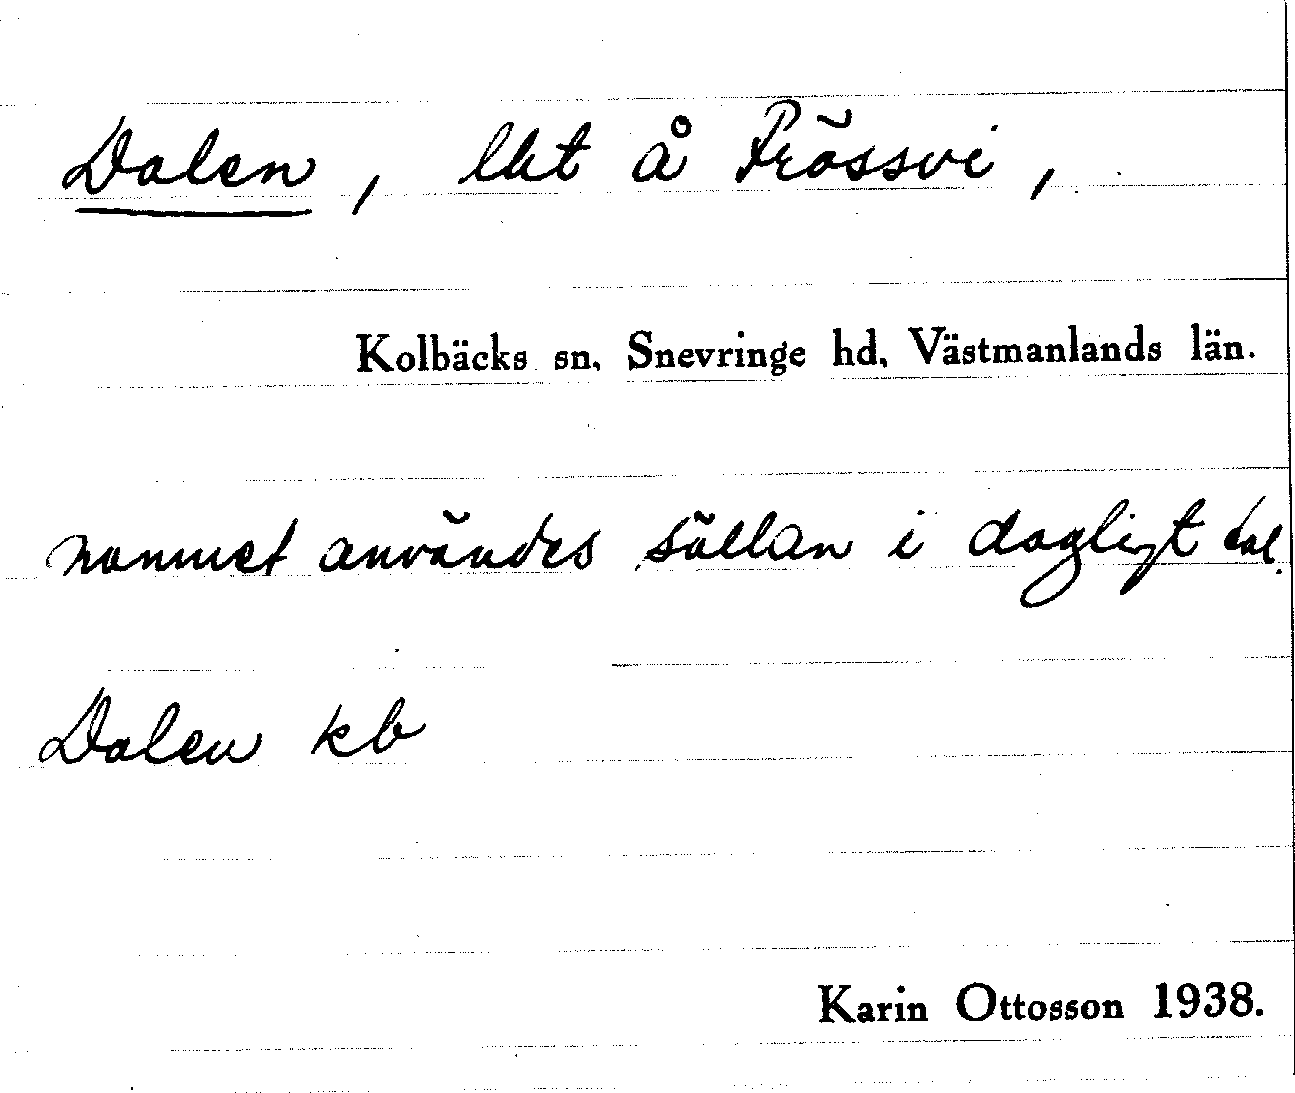 Dalen, lht å Frössvi,
Kolbäcks sn, Snevringe hd, Västmanlands län.
namnet användes sällan i dagligt tal.
Dalen kb
Karin Ottosson 1938.